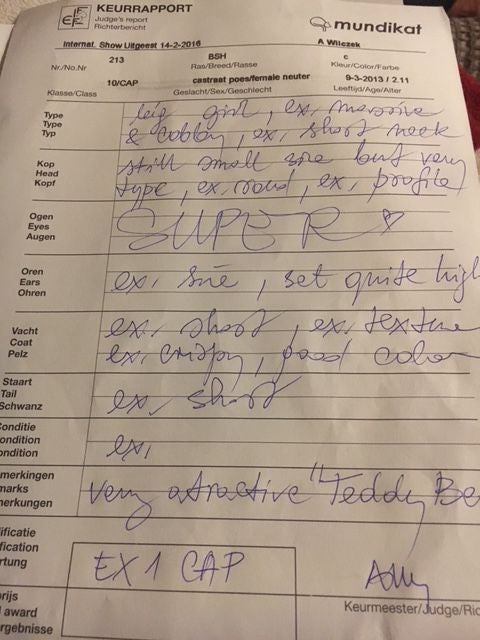 KEURRAPPORT
Judge's report
Richterbericht
mundikat
Internat. Show Uitgeest 14-2-2016
A Wilczek
213
BSH
c
Nr./No.Nr
Ras/Breed/Rasse
Kleur/Color/Farbe
10/CAP
castraat poes/female neuter
9-3-2013 / 2.11
Klasse/Class
Geslacht/Sex/Geschlecht
Leeftijd/Age/Alter
Type
Type
Typ
big girl, ex, massive
& cobby, ex, short neck
Kop
Head
Kopf
still small size but very
type, ex, round, ex, profile
Ogen
Eyes
Augen
SUPER
Oren
Ears
Ohren
ex, size, set quite high
Vacht
Coat
Pelz
ex, short, ex, texture
ex, crispy, good color
Staart
Tail
Schwanz
ex, short
Conditie
ondition
ondition
ex,
merkingen
marks
merkungen
very atractive "Teddy Be
ificatie
fication
rtung
EX 1 CAP
rijs
award
rgebnisse
Keurmeester/Judge/Ric